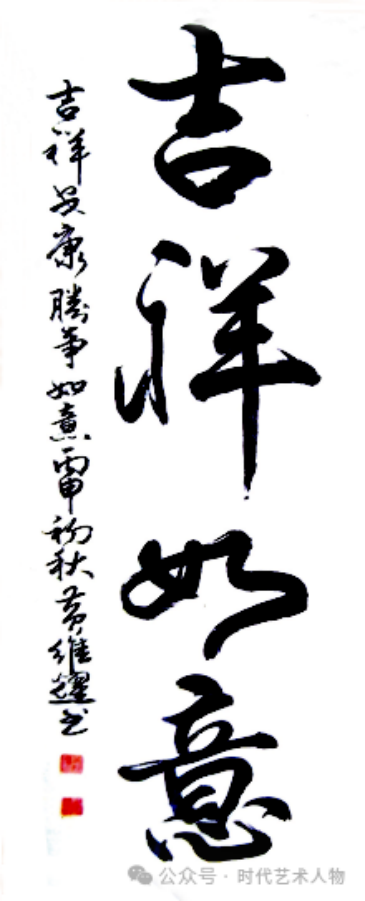 吉祥如意
吉祥安康勝事如意丙申初秋黄維耀书
公众号·时代艺术人物